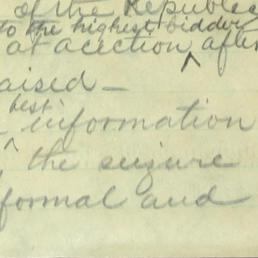 of the Republic
to the highest bidder
at auction after
aised —
best
information
the seizure
formal and